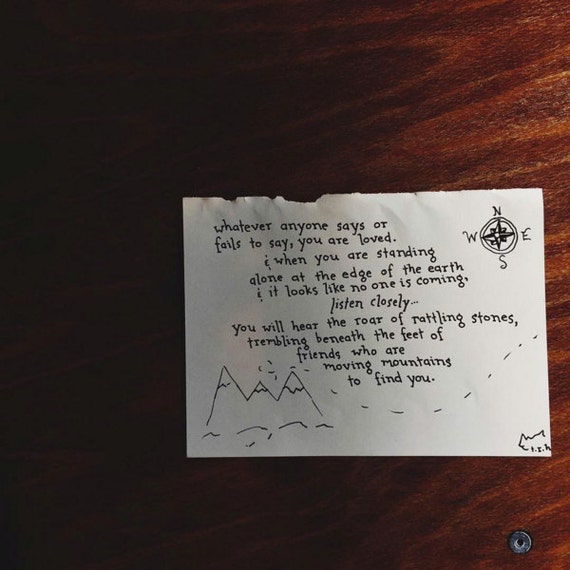 N
W E
S
whatever anyone says or
fails to say, you are loved.
& when you are standing
alone at the edge of the earth
& it looks like no one is coming,
listen closely...
you will hear the roar of rattling stones,
trembling beneath the feet of
friends who are
moving mountains
to find you.
t.s.h